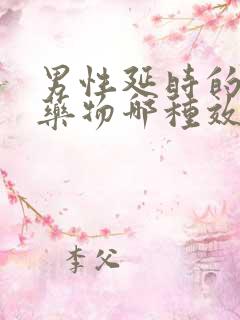 男性延時的
藥物哪種效
李父